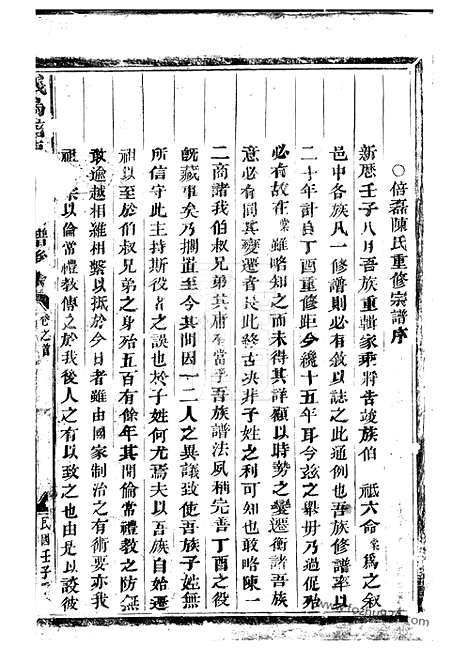 ○倍磊陳氏重修宗譜序
新歷壬子八月吾族重輯家乘將告竣族伯 祗六命棠爲之敘
邑中各族凡一修譜則必有敘以誌之此通例也吾族修譜率以
二十年計自丁酉重修距今纔十五年耳今茲之舉毋乃過促殆
必有故在棠雖略知之而未得其詳顧以時勢之變遷衡諸吾族
意必有同其變遷者長此終古决非子姓之利可知也敢略陳一
二商諸我伯叔兄弟其庸有當乎吾族譜法夙稱完善丁酉之役
旣蕆事矣乃擱置至今其間因一二人之異議致使吾族子姓無
所信守此主持斯役者之誤也於子姓何尤焉夫以吾族自始遷
祖以至於伯叔兄弟之身殆五百有餘年其間倫常禮教之防無
敢逾越相維相繫以抵於今日者雖由國家制治之有術要亦我
祖 以倫常禮教傳之於我後人之有以致之也由是以談彼
譜
卷之首
民國壬子
www.fozhu974.com